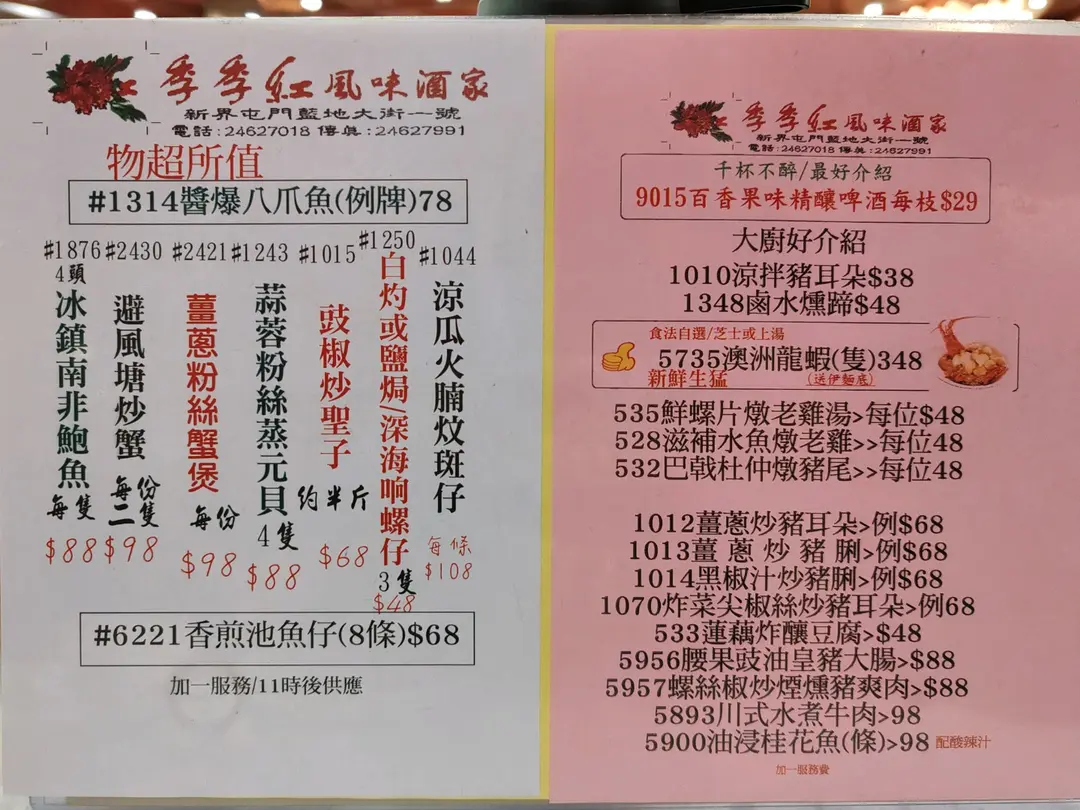 季季紅風味酒家
新界屯門藍地大街一號
電話:24627018 傳真:24627991
物超所值
#1314醬爆八爪魚(例牌)78
#1876
4頭
冰鎮南非鮑魚
每隻
$88
#2430
避風塘炒蟹
每份
二隻
$98
#2421
薑蔥粉絲蟹煲
每份
$98
#1243
蒜蓉粉絲蒸元貝
4隻
$88
#1015
豉椒炒聖子
約半斤
$68
#1250
白灼或鹽焗/深海响螺仔
3隻
$48
#1044
涼瓜火腩炆斑仔
每條
$108
#6221香煎池魚仔(8條)$68
加一服務/11時後供應
季季紅風味酒家
新界屯門藍地大街一號
電話:24627018 傳真:24627991
千杯不醉/最好介紹
9015百香果味精釀啤酒每枝$29
大廚好介紹
1010涼拌豬耳朵$38
1348鹵水燻蹄$48
食法自選/芝士或上湯
5735澳洲龍蝦(隻)348
新鮮生猛
(送伊麵底)
535鮮螺片燉老雞湯>每位$48
528滋補水魚燉老雞>>每位48
532巴戟杜仲燉豬尾>>每位48
1012薑蔥炒豬耳朵>例$68
1013薑 蔥 炒 豬 脷>例$68
1014黑椒汁炒豬脷>例$68
1070炸菜尖椒絲炒豬耳朵>例68
533蓮藕炸釀豆腐>$48
5956腰果豉油皇豬大腸>$88
5957螺絲椒炒煙燻豬爽肉>$88
5893川式水煮牛肉>98
5900油浸桂花魚(條)>98 配酸辣汁
加一服務費